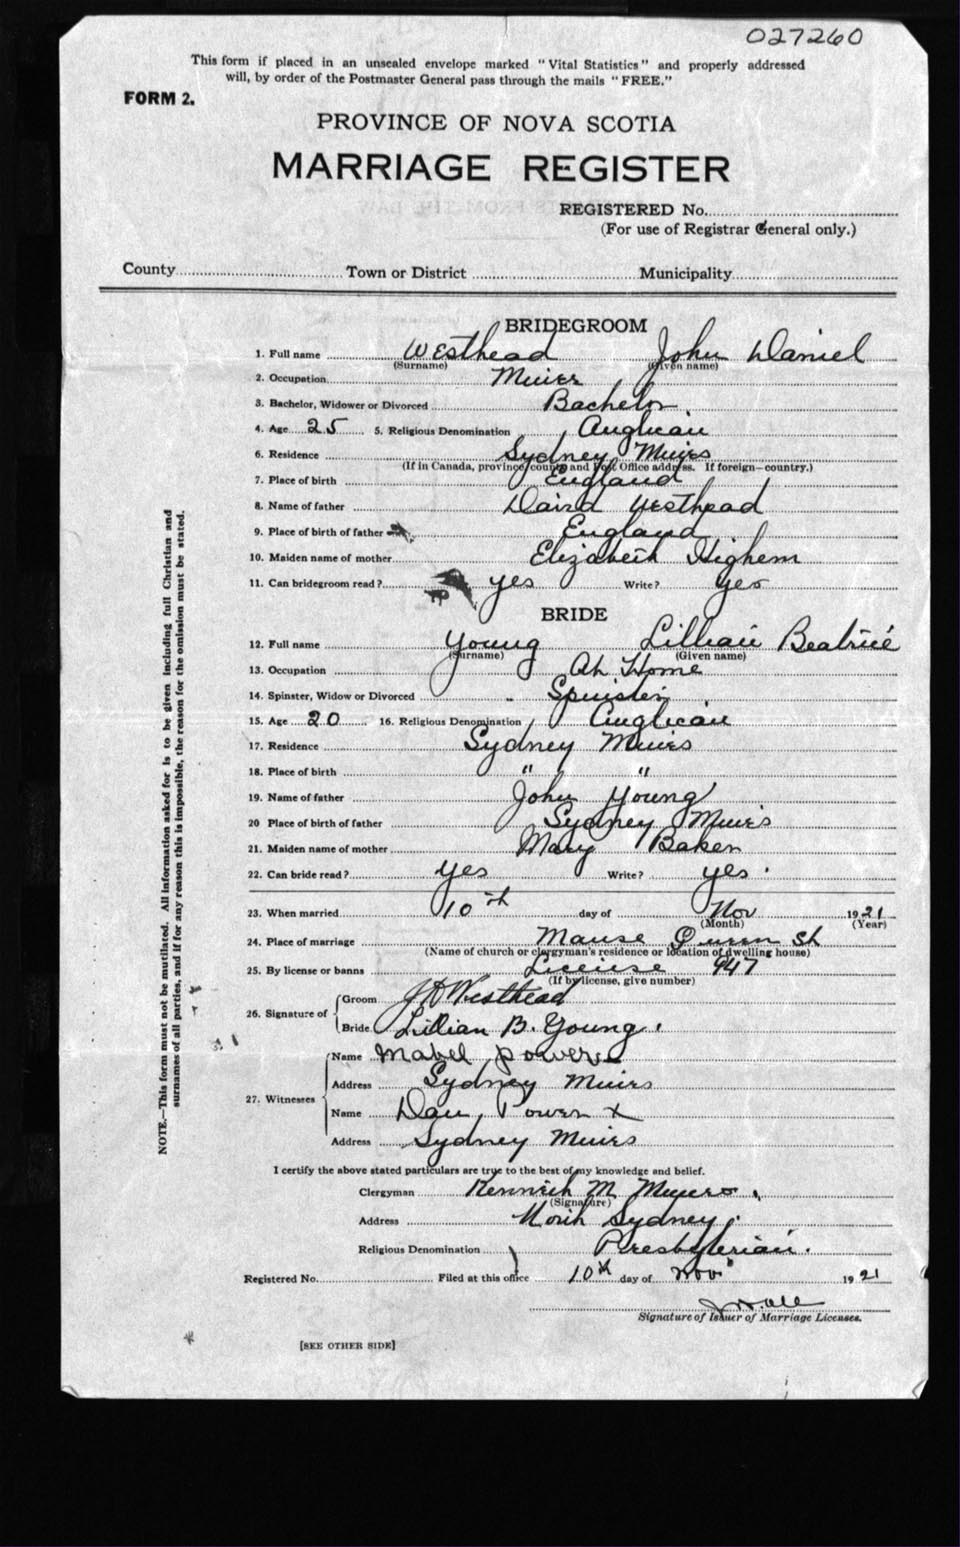 027260
This form if placed in an unsealed envelope marked "Vital Statistics" and properly addressed
will, by order of the Postmaster General pass through the mails "FREE."
FORM 2.
PROVINCE OF NOVA SCOTIA
MARRIAGE REGISTER
REGISTERED No.
(For use of Registrar General only.)
County Town or District Municipality
BRIDEGROOM
1. Full name Westhead John Daniel
(Surname) (Given name)
2. Occupation Miner
3. Bachelor, Widower or Divorced Bachelor
4. Age 25 5. Religious Denomination Anglican
6. Residence Sydney Mines
(If in Canada, province county and Post Office address. If foreign—country.)
7. Place of birth England
8. Name of father David Westhead
9. Place of birth of father England
10. Maiden name of mother Elizabeth Highem
11. Can bridegroom read? yes Write? yes
BRIDE
12. Full name Young Lillian Beatrice
(Surname) (Given name)
13. Occupation At Home
14. Spinster, Widow or Divorced Spinster
15. Age 20 16. Religious Denomination Anglican
17. Residence Sydney Mines
18. Place of birth " "
19. Name of father John Young
20 Place of birth of father Sydney Mines
21. Maiden name of mother Mary Baker
22. Can bride read? yes Write? yes.
23. When married 10th day of Nov 1921
(Month) (Year)
24. Place of marriage Manse Queen St
(Name of church or clergyman's residence or location of dwelling house)
25. By license or banns License 947
(If by license, give number)
26. Signature of Groom J D Westhead
Bride Lillian B. Young.
27. Witnesses Name Mabel Powers
Address Sydney Mines
Name Dan Power x
Address Sydney Mines
I certify the above stated particulars are true to the best of my knowledge and belief.
Clergyman Kenneth M Munro.
(Signature)
Address North Sydney.
Religious Denomination Presbyterian.
Registered No. Filed at this office 10th day of Nov 1921
Signature of Issuer of Marriage Licenses.
[SEE OTHER SIDE]
NOTE.—This form must not be mutilated. All information asked for is to be given including full Christian and
surnames of all parties, and if for any reason this is impossible, the reason for the omission must be stated.